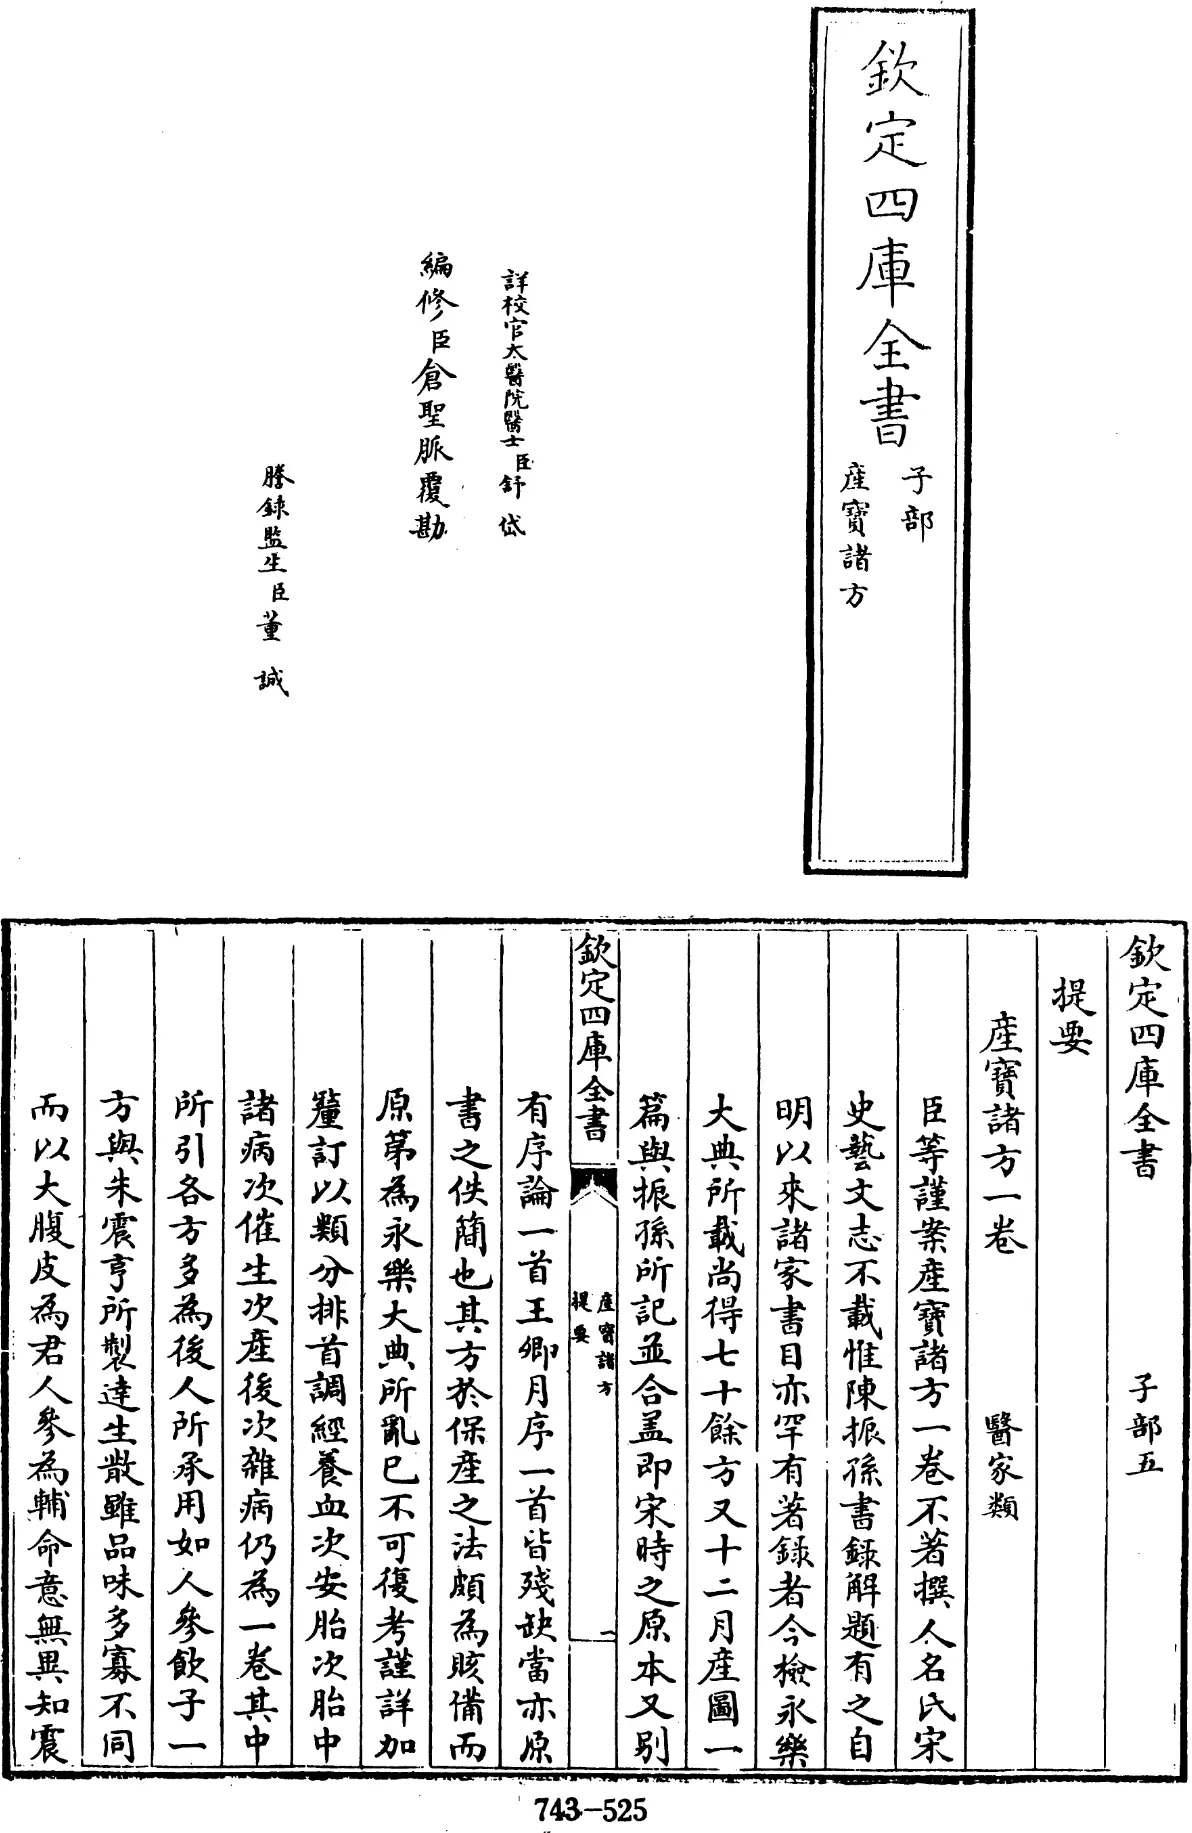 欽定四庫全書
子部
産寳諸方
詳校官太醫院醫士臣舒岱
編修臣倉聖脈覆勘
謄錄監生臣董誠
欽定四庫全書 子部五
提要
産寳諸方一卷 醫家類
臣等謹案産寳諸方一卷不著撰人名氏宋
史藝文志不載惟陳振孫書錄解題有之自
明以來諸家書目亦罕有著錄者今檢永樂
大典所載尚得七十餘方又十二月産圖一
篇與振孫所記並合蓋即宋時之原本又别
欽定四庫全書
産寳諸方
提要
一
有序論一首王卿月序一首皆殘缺當亦原
書之佚簡也其方於保産之法頗為賅備而
原第為永樂大典所亂已不可復考謹詳加
釐訂以類分排首調經養血次安胎次胎中
諸病次催生次産後次雜病仍為一卷其中
所引各方多為後人所承用如人參飲子一
方與朱震亨所製達生散雖品味多寡不同
而以大腹皮為君人參為輔命意無異知震
743-525